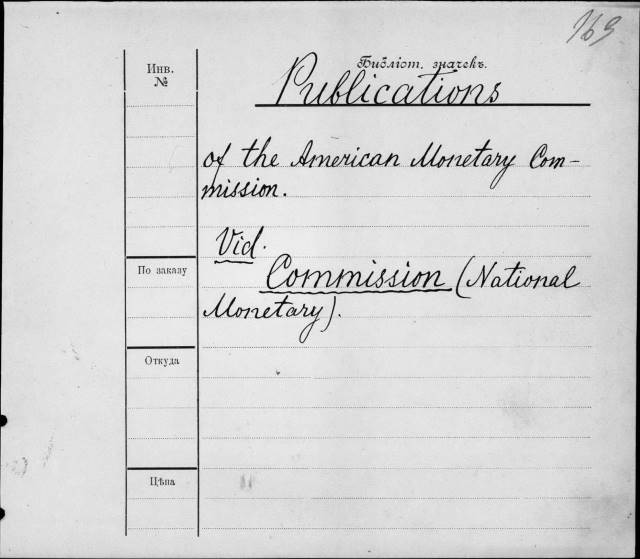 169
Библіот. значекъ.
Инв.
№
Publications
of the American Monetary Com-
mission.
Vid.
Commission (National
Monetary).
По заказу
Откуда
Цѣна